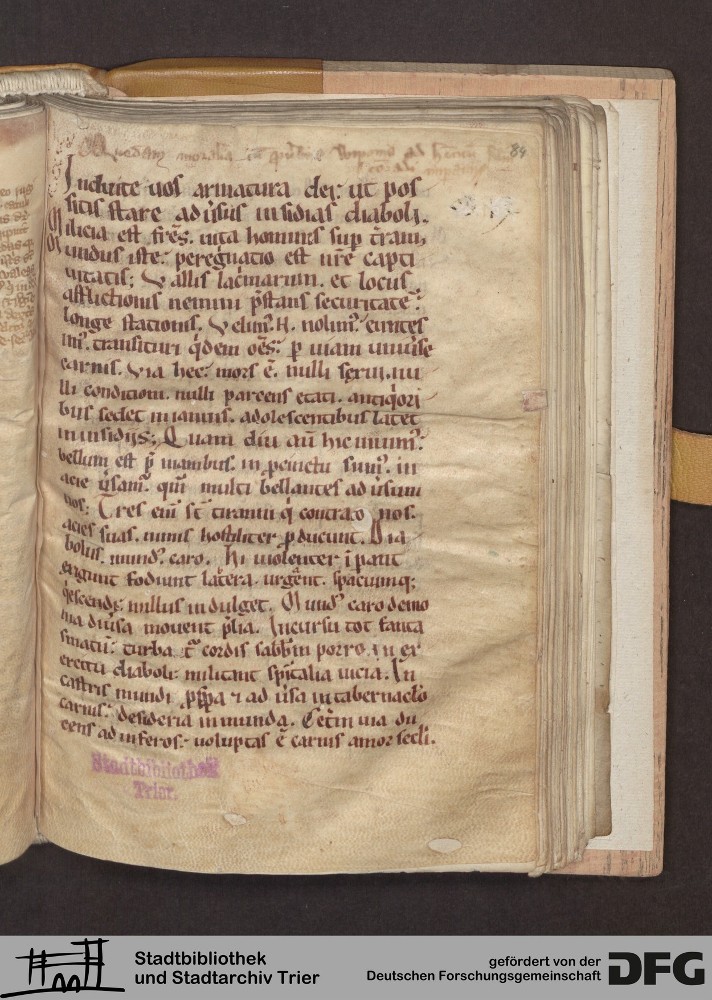 Quedam moralia
84
Induite uos armatura dei: ut pos
sitis stare aduersus insidias diaboli.
Milicia est fres. uita hominis sup tram,
Mundus iste: peregnatio est nre capti
uitatis; Vallis lacrimarum. et locus
afflictionis nemini pstans securitate:
longe stationis. Velim. N. nolim. euntes
im. transituri qdem oes: p uiam uniuse
carnis. Via hec: mors e. nulli sexui. nu
lli conditioni. nulli parcens etati. antiqori
bus sedet in ianuis. adolescentibus latet
in insidijs; Quam diu aut hic uiuim:
bellum est p manibus. in pcinctu sum. in
acie usam. qm multi bellantes aduersum
nos: Tres eni st tiranni q contra nos.
acies suas. nimis hostiliter pducunt. Dia
bolus. mund. caro. Hi uiolenter
fodiunt latera. urgent. spacium q;
qescendi: nullus indulget. Mund caro demo
nia diuersa mouent plia. Incursu tot fanta
smatu: turba t cordis sabbm porro. In ex
ercitu diaboli: militant spitalia uicia. In
castris mundi pspa 7 aduersa in tabernaclo
carnis: desideria inmunda. Cetm uia du
cens ad inferos: uoluptas e carnis amor secli.
Stadtbibliothek
Trier.
Stadtbibliothek
und Stadtarchiv Trier
gefördert von der
Deutschen Forschungsgemeinschaft
DFG